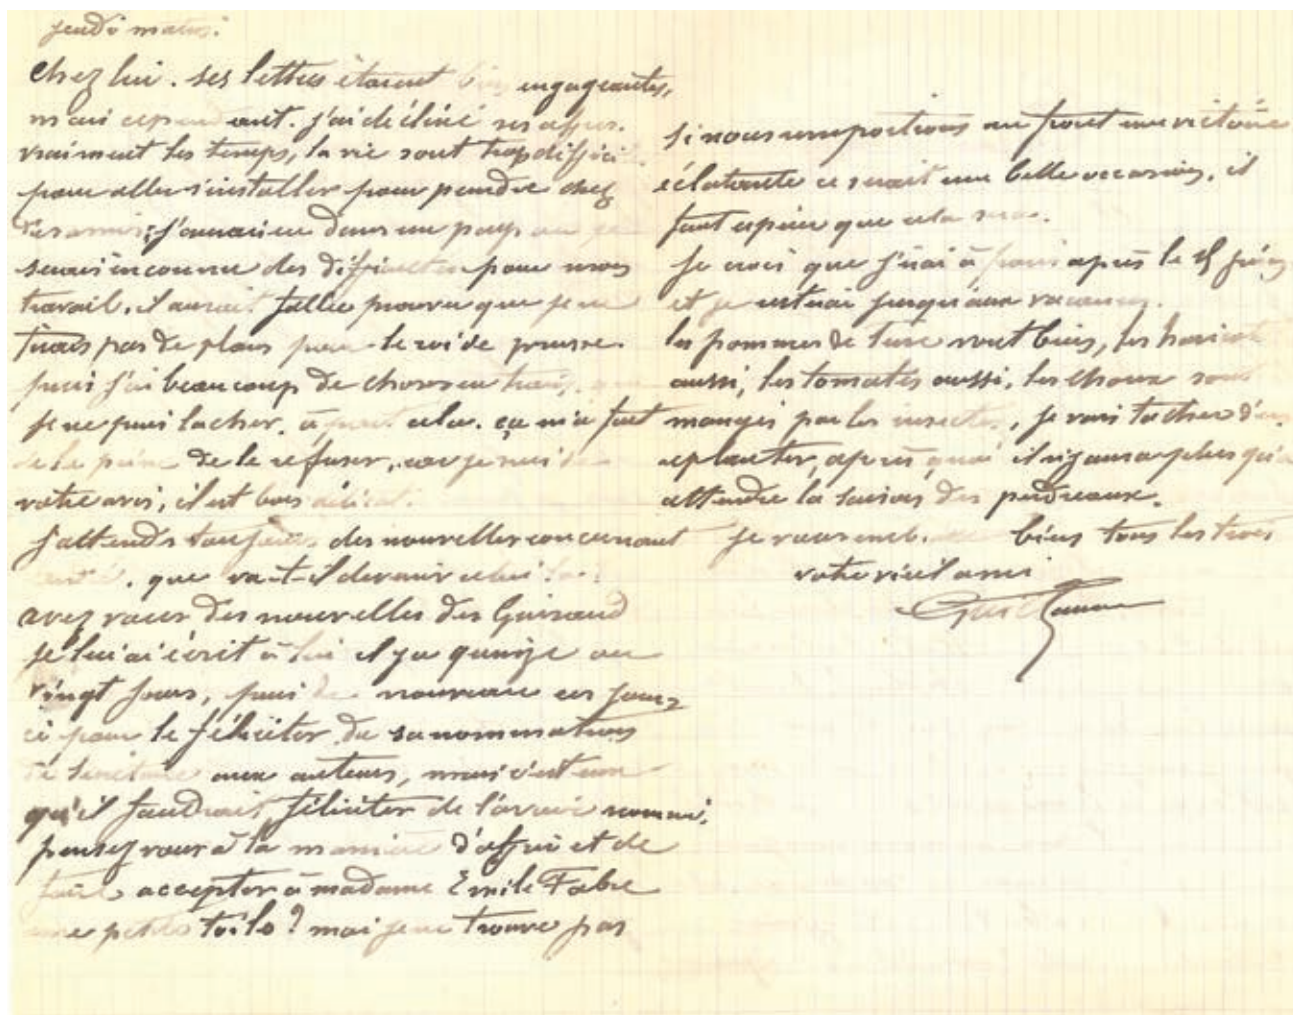 jeudi matin.
chez lui. ses lettres étaient bien engageantes,
mais cependant. j'ai décliné ses offres.
vraiment les temps, la vie sont trop difficil
pour aller s'installer pour peindre chez
des amis; j'aurai eu dans un pays ou je
serais inconnu des difficultés pour mon
travail. il aurait fallu prouver que je ne
tirais pas de plans pour le roi de prusse.
puis j'ai beaucoup de choses en train, que
je ne puis lacher. à part cela. ça m'a fait
de la peine de le refuser, car je suis de
votre avis, il est bon délicat.
J'attends toujours des nouvelles concernant
que va-t-il devenir celui la!
avez vous des nouvelles des Guirand
je lui ai écrit à lui il y a quinze ou
vingt jours, puis de nouveau ces jours
ci pour le féliciter de sa nomination
de aux auteurs, mais c'est eux
qu'il faudrait féliciter de l'avoir nommé.
pensez vous à la manière d'offrir et de
faire accepter à madame Emile Fabre
une petite toile? moi je ne trouve pas
si nous emportions au front une victoire
éclatante ce serait une belle occasion. il
faut espérer que cela sera.
Je crois que j'irai à paris après le 15 juin
et je resterai jusqu'aux vacances.
les pommes de terre vont bien, les haricots
aussi, les tomates aussi, les choux sont
mangés par les insectes, je vais tacher d'en
replanter, après quoi il n'y aura plus qu'a
attendre la saison des perdreaux.
Je vous emb. bien tous les trois
votre vieil ami
Guillaumin